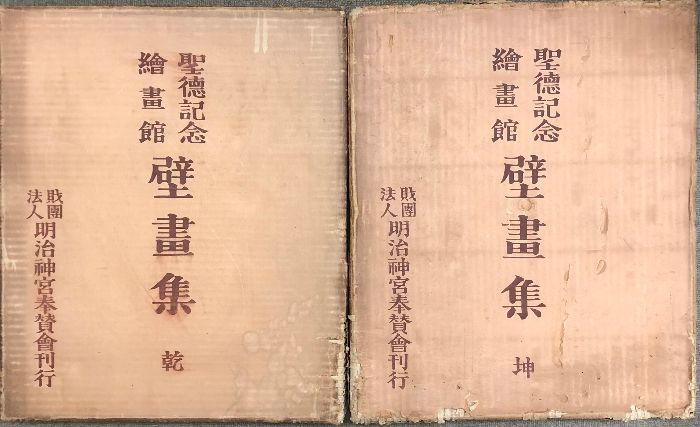 聖德記念
繪畫館
壁畫集
乾
財團
法人
明治神宮奉贊會刊行
聖德記念
繪畫館
壁畫集
坤
財團
法人
明治神宮奉贊會刊行